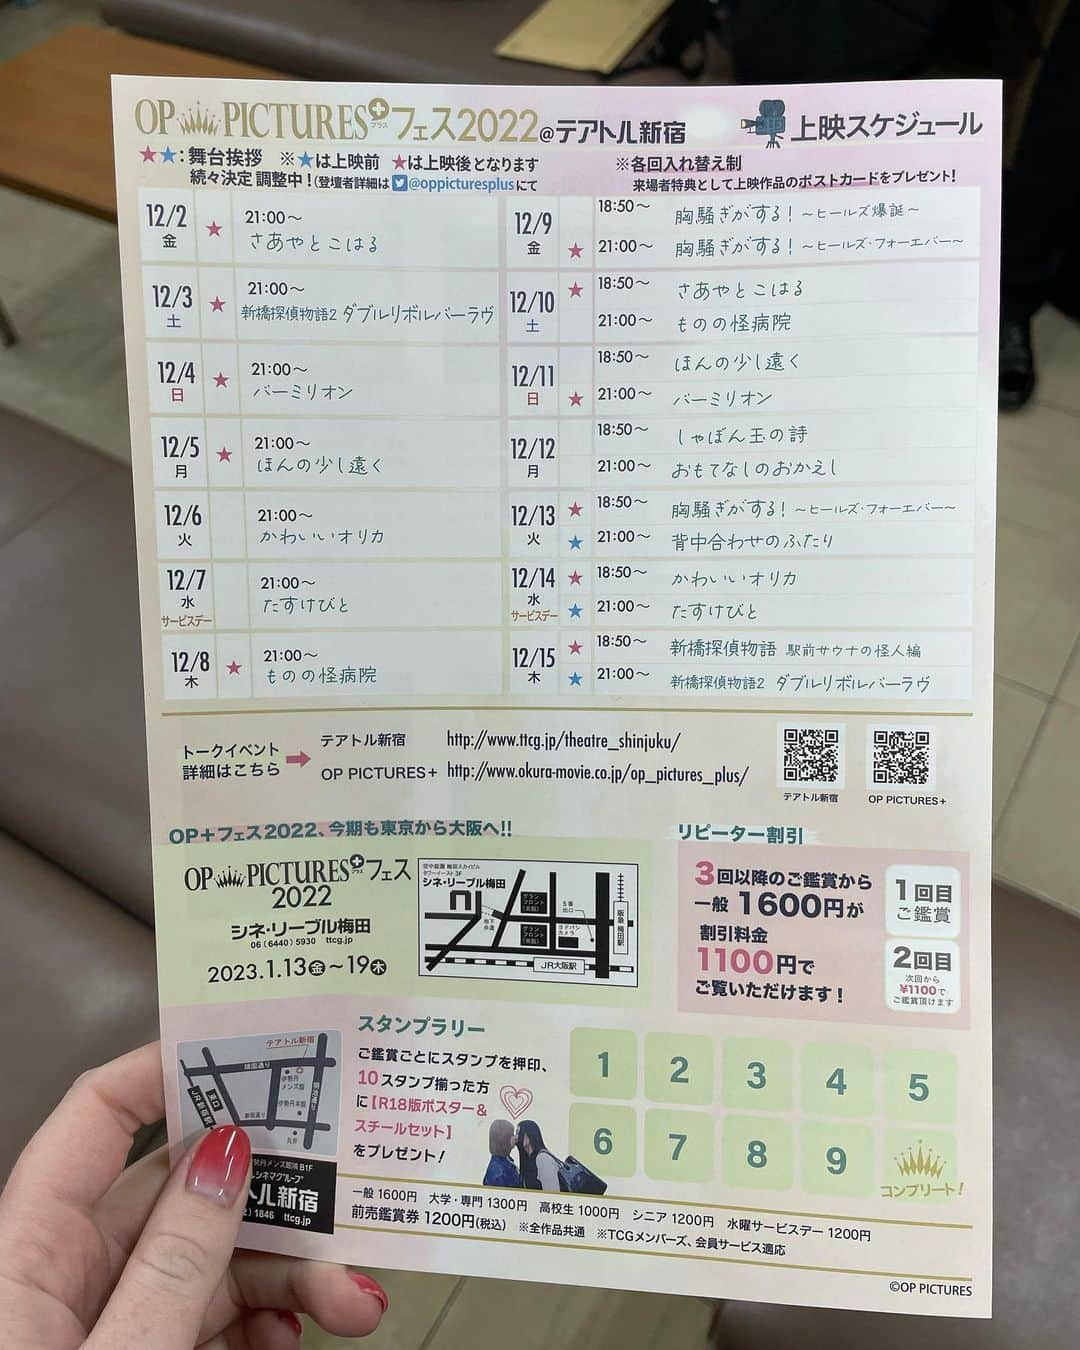 OP PICTURES+プラス フェス2022@テアトル新宿 上映スケジュール
★★：舞台挨拶 ※★は上映前 ★は上映後となります
続々決定 調整中！（登壇者詳細は@oppicturesplusにて
※各回入れ替え制
来場者特典として上映作品のポストカードをプレゼント！
12/2 金 ★ 21:00～ さあやとこはる
12/3 土 ★ 21:00～ 新橋探偵物語2 ダブルリボルバーラヴ
12/4 日 ★ 21:00～ バーミリオン
12/5 月 ★ 21:00～ ほんの少し遠く
12/6 火 21:00～ かわいいオリカ
12/7 水 サービスデー 21:00～ たすけびと
12/8 木 ★ 21:00～ ものの怪病院
12/9 金 18:50～ 胸騒ぎがする！～ヒールズ爆誕～
★ 21:00～ 胸騒ぎがする！～ヒールズ・フォーエバー～
12/10 土 ★ 18:50～ さあやとこはる
21:00～ ものの怪病院
12/11 日 18:50～ ほんの少し遠く
★ 21:00～ バーミリオン
12/12 月 18:50～ しゃぼん玉の詩
21:00～ おもてなしのおかえし
12/13 火 ★ 18:50～ 胸騒ぎがする！～ヒールズ・フォーエバー～
★ 21:00～ 背中合わせのふたり
12/14 水 サービスデー ★ 18:50～ かわいいオリカ
★ 21:00～ たすけびと
12/15 木 ★ 18:50～ 新橋探偵物語 駅前サウナの怪人編
★ 21:00～ 新橋探偵物語2 ダブルリボルバーラヴ
トークイベント
詳細はこちら
テアトル新宿 http://www.ttcg.jp/theatre_shinjuku/
OP PICTURES+ http://www.okura-movie.co.jp/op_pictures_plus/
テアトル新宿
OP PICTURES+
OP+フェス2022、今期も東京から大阪へ!!
OP PICTURES+プラス フェス
2022
シネ・リーブル梅田
06（6440）5930 ttcg.jp
2023.1.13金～19木
空中庭園 梅田スカイビル
タワーイースト3F
シネ・リーブル梅田
地下歩道
グランフロント（北館）
グランフロント（南館）
5番出口
ヨドバシカメラ
阪急 梅田駅
JR大阪駅
リピーター割引
3回以降のご鑑賞から
一般 1600円が
割引料金
1100円で
ご覧いただけます！
1回目
ご鑑賞
2回目
次回から
¥1100で
ご鑑賞頂けます
テアトル新宿
靖国通り
伊勢丹メンズ館
伊勢丹本館
明治通り
JR新宿駅
東口
新宿通り
丸井
勢丹メンズ館隣 B1F
ルシネマグループ
トル新宿
1846 ttcg.jp
スタンプラリー
ご鑑賞ごとにスタンプを押印、
10スタンプ揃った方
に【R18版ポスター＆
スチールセット】
をプレゼント！
1 2 3 4 5
6 7 8 9 コンプリート！
一般 1600円 大学・専門 1300円 高校生 1000円 シニア 1200円 水曜サービスデー 1200円
前売鑑賞券 1200円(税込) ※全作品共通 ※TCGメンバーズ、会員サービス適応
©OP PICTURES